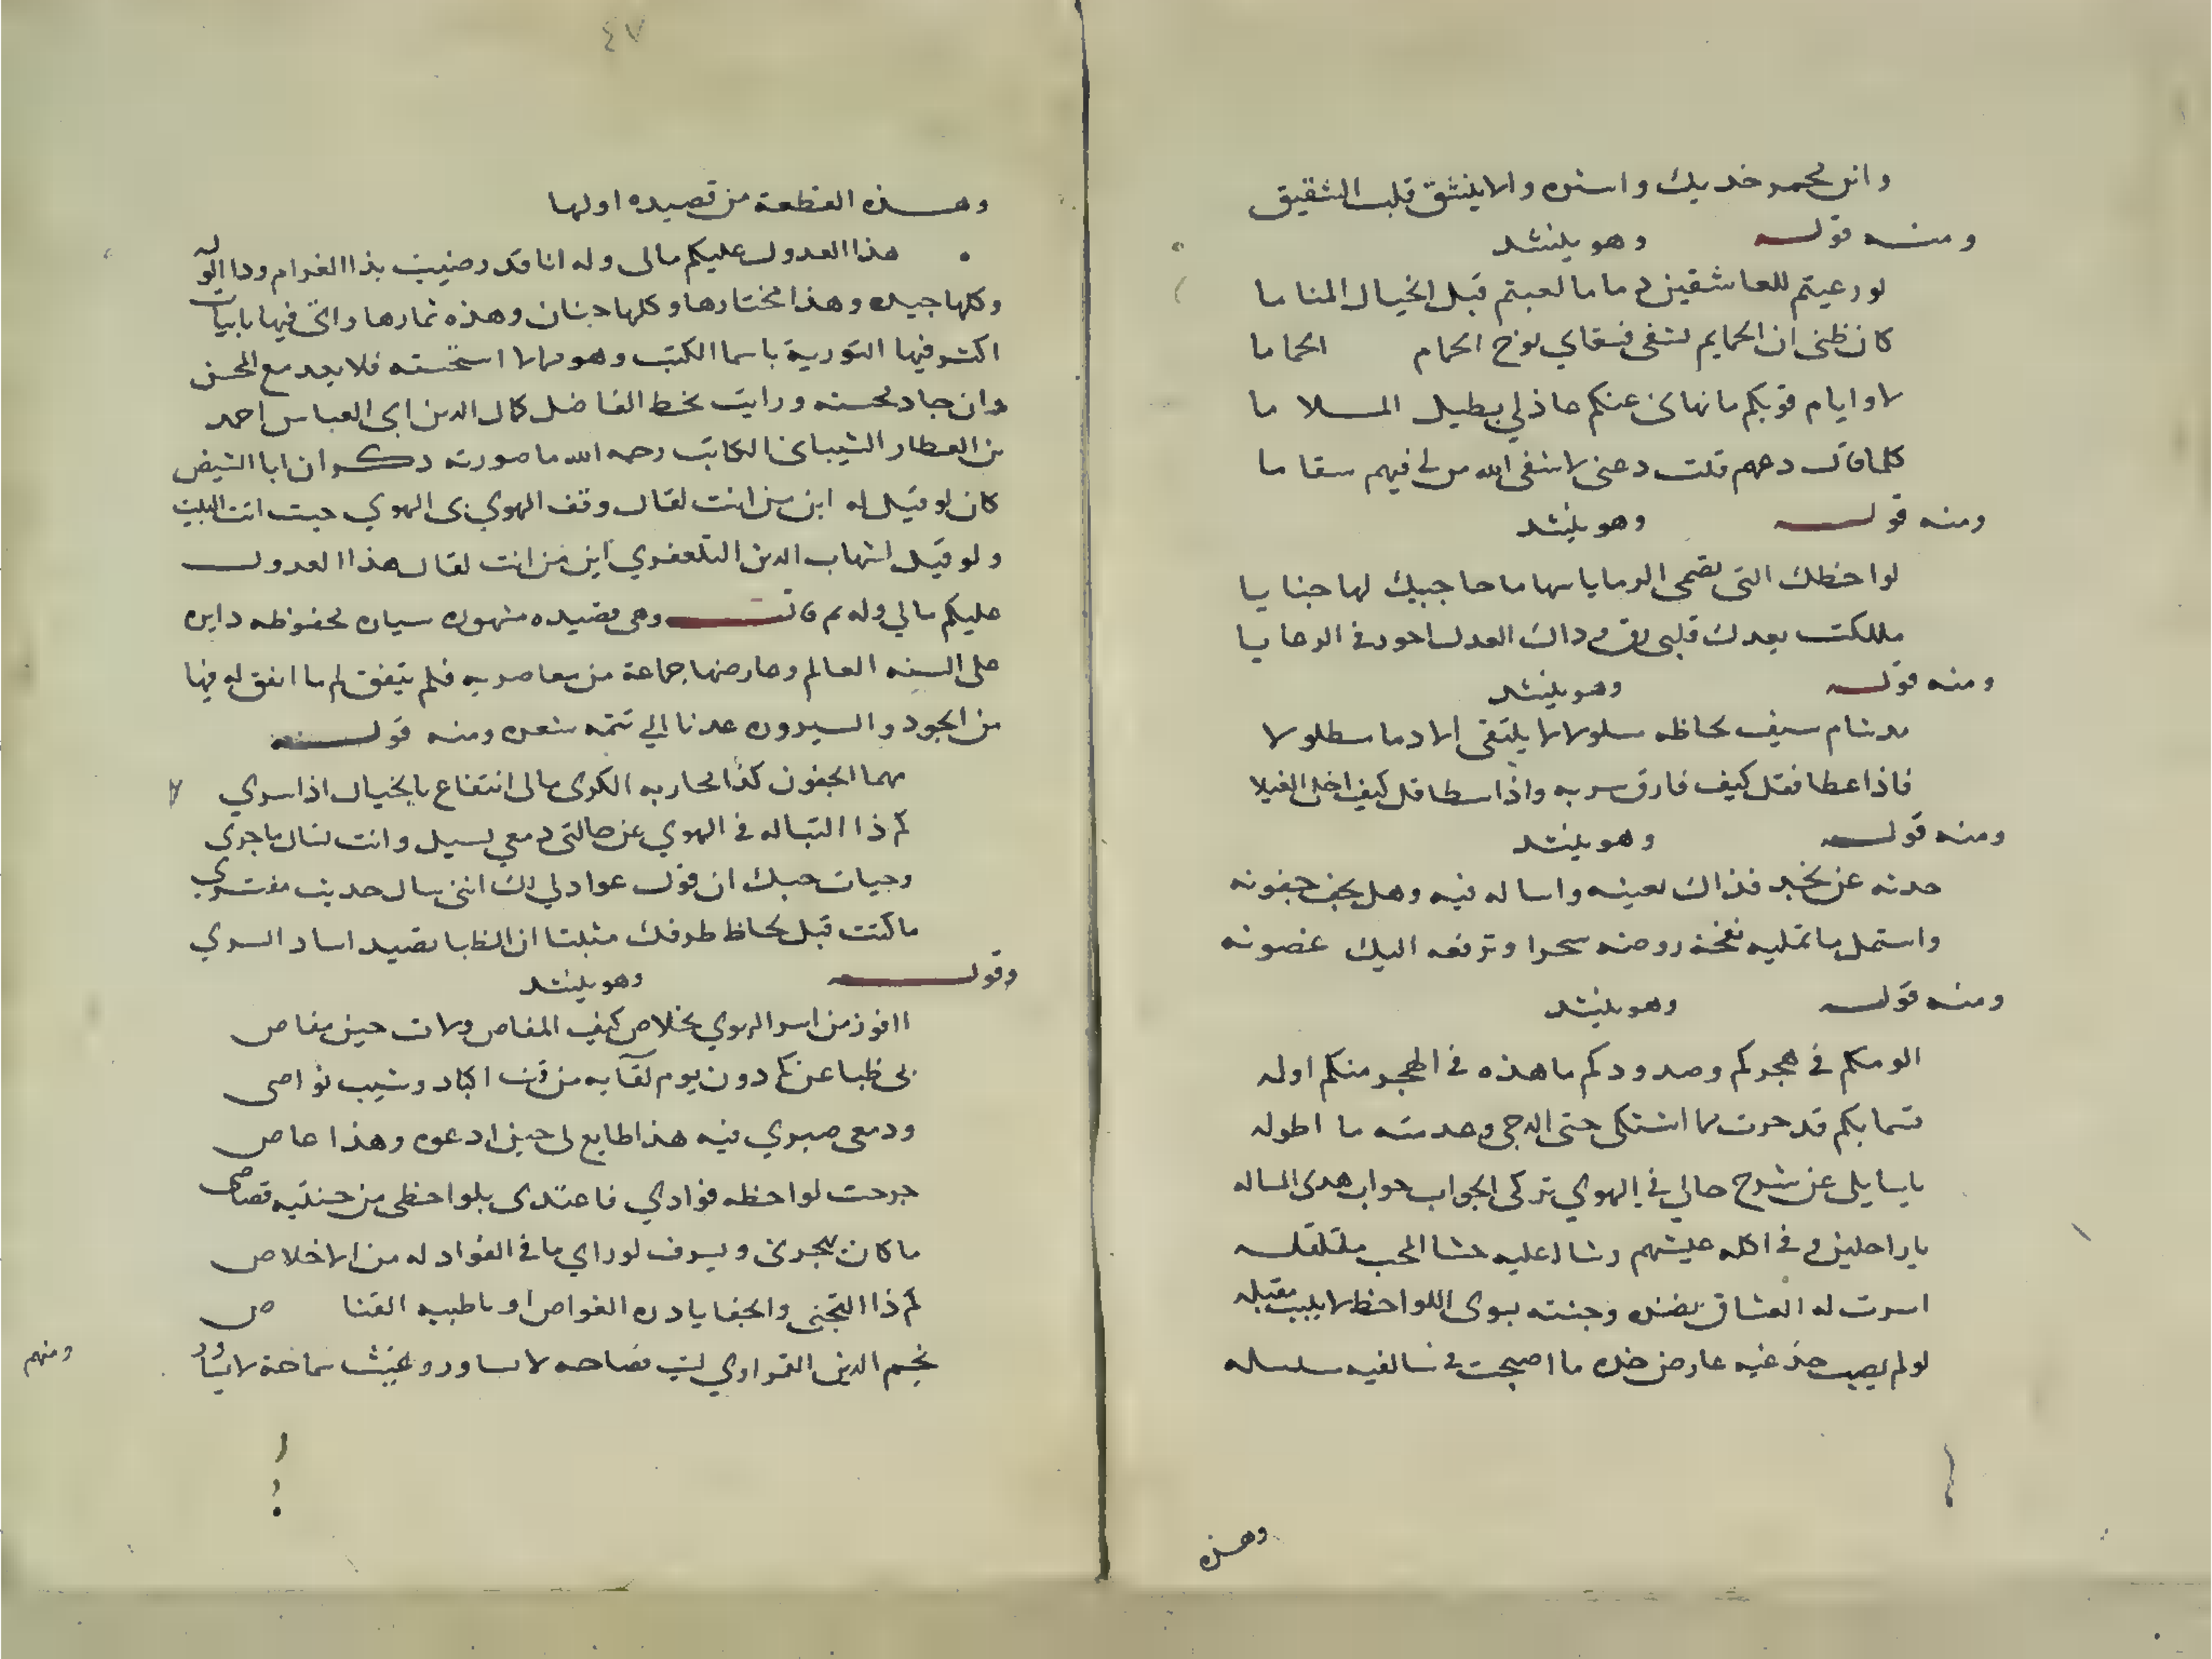 وانر محمر خديك واستره والاينشق قلب الشقيق
ومنه قوله وهو ينشد
لو رعيتم للعاشقين دماما لعبتم قبل الخيال المناما
كان ظنى ان الحمايم تشفى فسقاي نوح الحمام الحماما
لا وايام قربكم ما نهانى عنكم عاذلي بطيل الملا ما
كلما قال دعهم قلت دعنى لا شفى الله من لى فيهم سقا ما
ومنه قوله وهو ينشد
لواحظك التى تصمى الرمايا سهاما حاجبيك لها حنايا
ملكت بعدك قلبى داك العدل احور فى الرعايا
ومنه قوله وهو ينشد
مد شام سيف لحاظه سلولا لا يلتقى الا دما مطلولا
فاذا عطا فقل كيف فارق سربه واذا سطا قل كيف اخلى الغيلا
ومنه قوله وهو ينشد
حدثه عن نجد فذاك يعينه واساله فيه وهل يجف جفونه
واستمل ما تمليه نفحة روضه سحرا وترفعه اليك غصونه
ومنه قوله وهو ينشد
الومكم فى هجركم وصدودكم ما هذه فى الهجر منكم اوله
قسما بكم قد حرت مما اشتكى حتى الدجى وعدمته ما اطوله
يا سايلى عن شرح حالي في الهوي تركى الجواب جواب هدى المساله
يا راحلين وفى اكله عيشهم رشا عليه حشا المحب مقلقله
اسرت له العشاق وجنته بوى اللواحظ مقبله
لو لم يصب صدغيه عارض خده ما اصبحت فى سالفيه سلسله
وهذه
٤٧
وهذه القطعة من قصيده اولها
هذا العدول عليكم مالى وله انا قد رضيت بذا الغرام وذا الوله
وكلها جيده وهذا مختارها وكلها جنان وهذه ثمارها واتى فيها بابيات
اكثر فيها التورية باسما الكتب وهو مما لا استحسنه فلا يعد مع المحسن
وان جاد محسنه ورايت بخط الفاضل كمال الدين ابى العباس احمد
بن العطار الشيبانى الكاتب رحمه الله ما صورته ذكر ان ابا الشيص
كان لو قيل له اين من انت لقال وقف الهوي بى الهوي حيث انت البيت
ولو قيل لشهاب الدين التلعفري اين من انت لقال هذا العدول
عليكم مالي وله ثم قالت وهى قصيده مشهوره سياره محفوظه دايره
على السنه العالم وعارضها جماعة من معاصريه فلم يتفق لهم ما اتفق له فيها
من الجوده والسيروره عدنا الي تتمه شعره ومنه قوله
مهما الجفون كذا محاربه الكرى مالى انتفاع بالخيال اذا سري
كم ذا التباله فى الهوي عن حالتى دمعي يسيل وانت تسال ما جرى
وحيات حبك ان قول عوادلي لك اننى سال حديث مفترى
ما كنت قبل لحاظ طرفك مثبتا ان الظبا تصيد اساد الشري
وقوله وهو ينشد
اافوز من اسر الهوي بخلاص كيف المفاص ولات حين مفاص
بى ظبا عز كم دون يوم لقآيه من فت اكباد وشيب نواصى
ودمعى صبري فيه هذا طايع لى حين ادعوه وهذا عاص
جرحت لواحظه فوادي فاعتدى بلواحظى من جنتيه قصاص
ما كان يهجرنى ويسرف لو راي ما فى الفواد له من الاخلاص
كم ذا التجنى والجفا يا دره الغواص او يا ظبيه القناص
نجم الدين القمراوي ليث فصاحه لا يساور وغيث سماحة لا
ومنهم